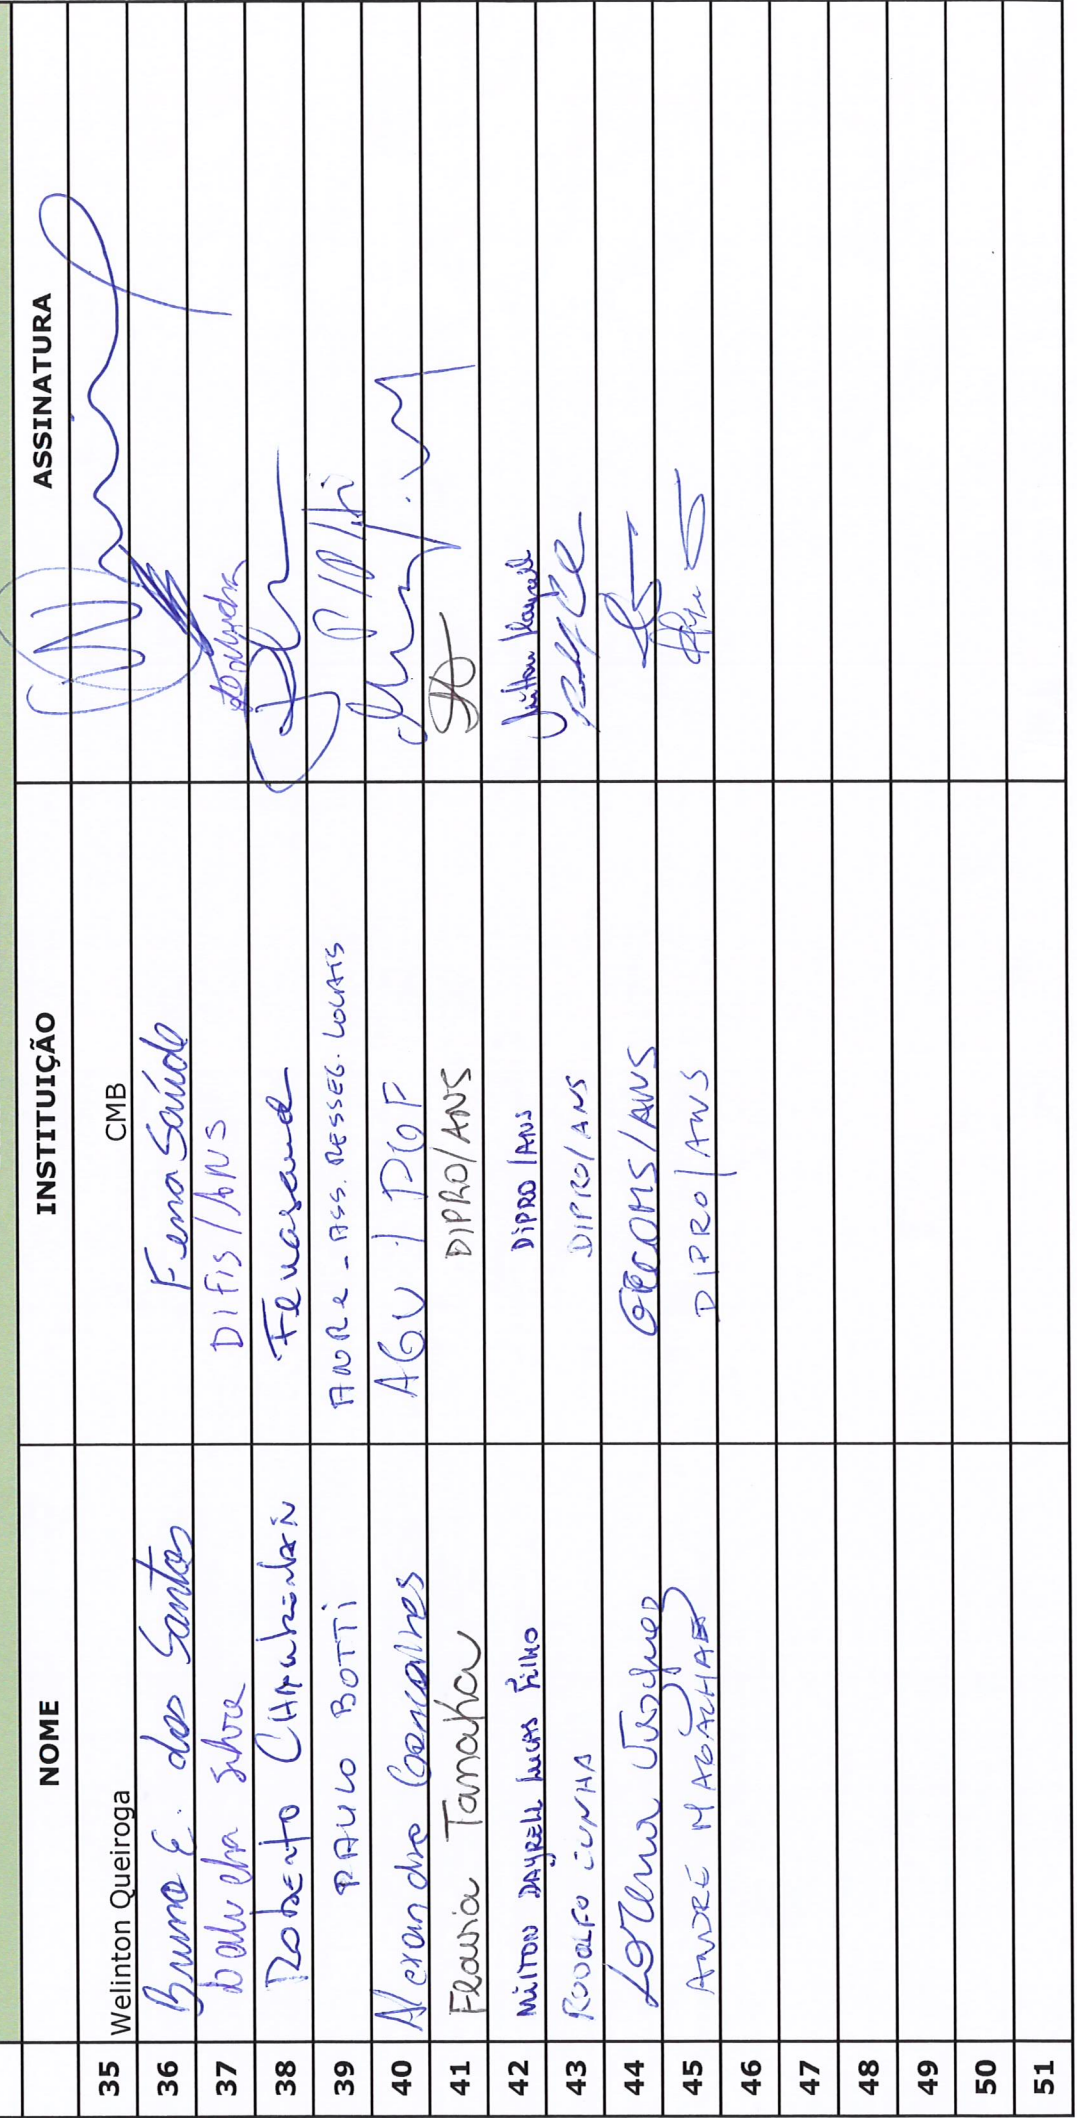 NOME INSTITUIÇÃO ASSINATURA
35 Welinton Queiroga CMB
36 Bruno E. dos Santos FenaSaúde
37 Dalvelha Silva DIFIS/ANS
38 Roberto Fenasaud
39 PAULO BOTTI ANRe - ASS. RESSEG. LOCAIS
40 Alexandre Goncalves AGU / PGF
41 Flavia Tanaka DIPRO/ANS
42 MILTON DAYRELL LUCAS FILHO DIPRO/ANS Milton Dayrell
43 RODOLFO CUNHA DIPRO/ANS
44 Lorena /ANS
45 ANDRÉ MAGALHÃES DIPRO/ANS
46
47
48
49
50
51